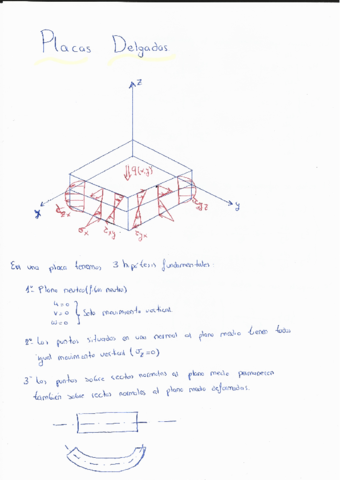 Placas Delgadas
z
q(x,y)
x
y
τzx
σx
τxy
τyx
En una placa tenemos 3 hipótesis fundamentales:
1ª Plano neutro (fibra neutra)
u=0
v=0
w=0
Solo movimiento vertical
2ª Los puntos situados en una normal al plano medio tienen todos
igual movimiento vertical (σz=0)
3ª Los puntos sobre rectas normales al plano medio permanecen
también sobre rectas normales al plano medio deformadas.